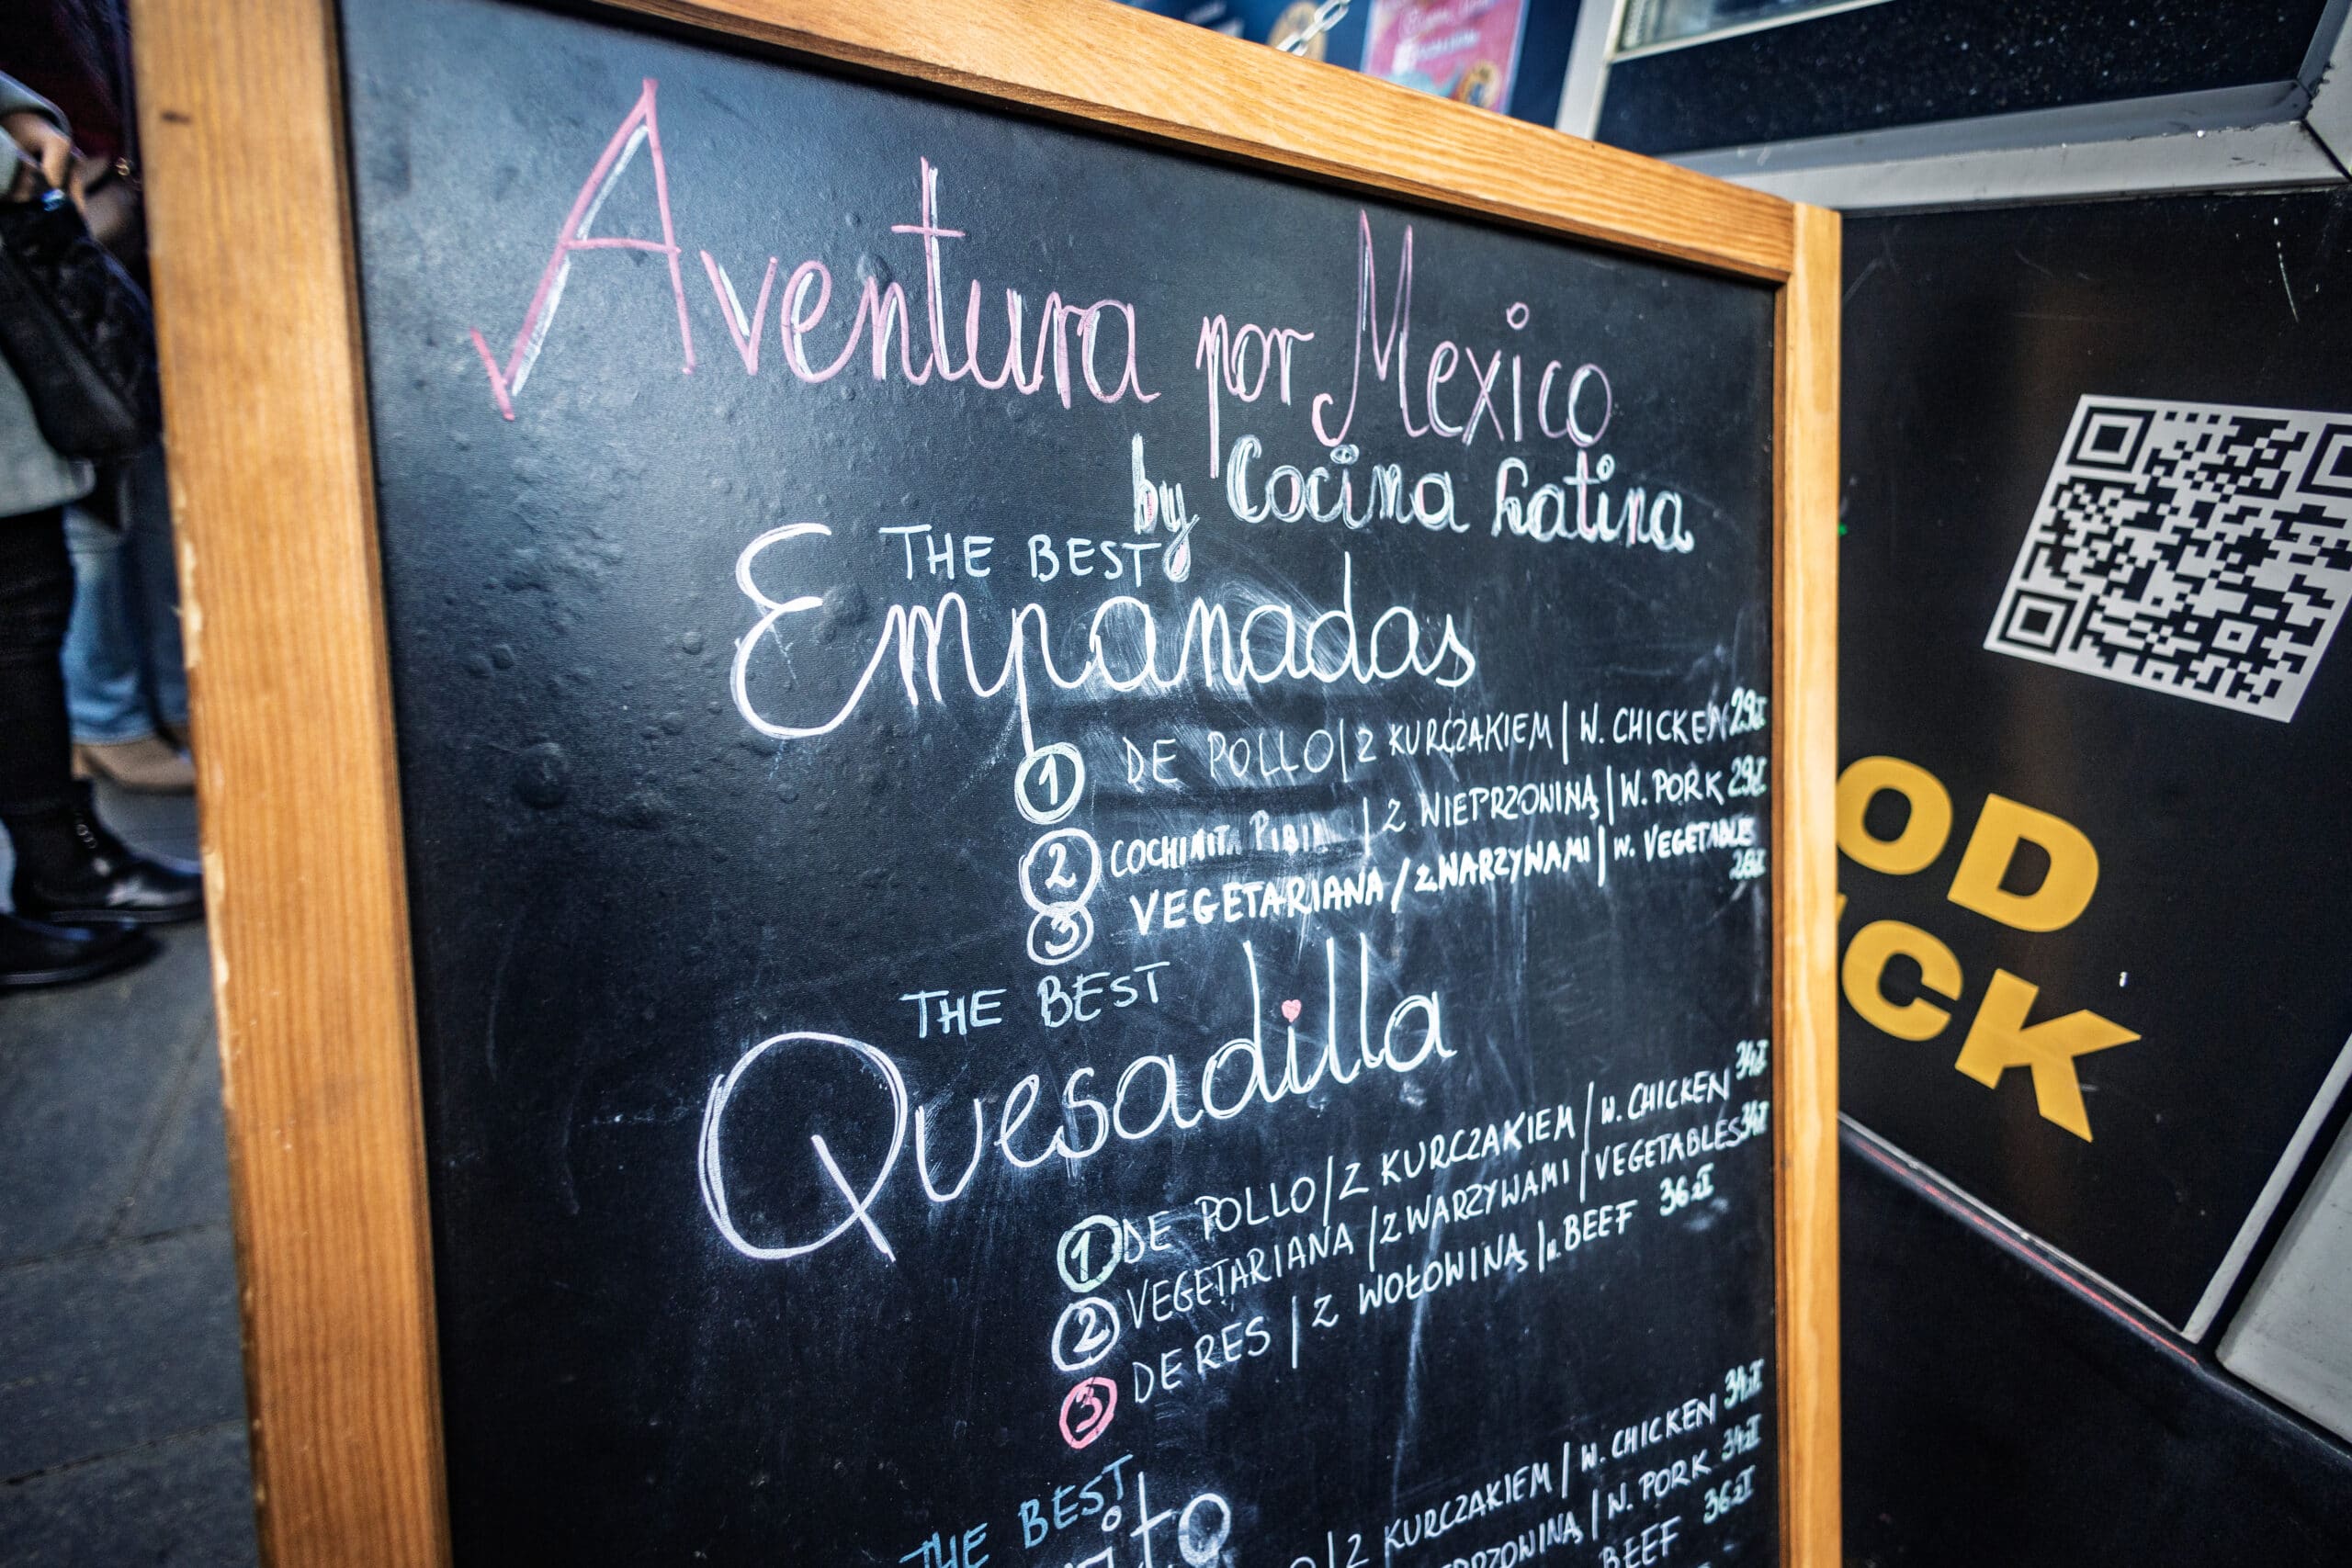 Aventura por Mexico
by Cocina Latina
THE BEST
Empanadas
1 DE POLLO | Z KURCZAKIEM | W. CHICKEN 29zł
2 COCHINIT PIBIL | Z WIEPRZOWINĄ | W. PORK 29zł
3 VEGETARIANA / Z WARZYWAMI | W. VEGETABLE
28zł
THE BEST
Quesadilla
1 DE POLLO / Z KURCZAKIEM | W. CHICKEN 34zł
2 VEGETARIANA / Z WARZYWAMI | VEGETABLES 34zł
3 DE RES | Z WOŁOWINĄ | W. BEEF 36zł
THE BEST
ito
O | Z KURCZAKIEM | W. CHICKEN 34zł
PRZOWINĄ | W. PORK 34zł
BEEF 36zł
OD
CK